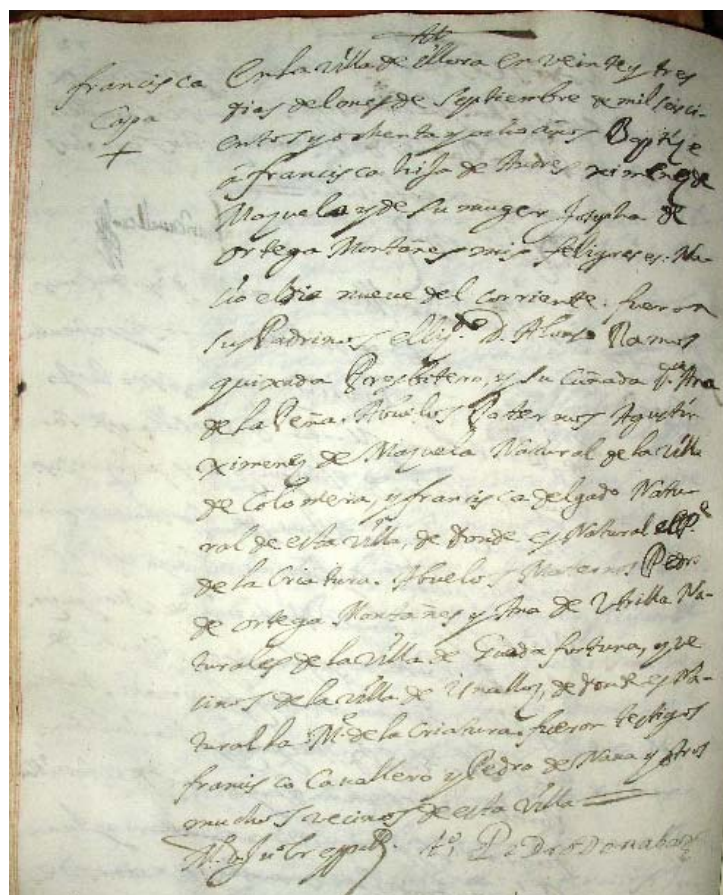 francisca
Capa
En la villa de Illora en veinte y tres
dias del mes de Septiembre de mil seisci-
entos y ochenta y ocho años Bapticé
á francisca hija de Andres ximenez de
Mazuela y de su muger Josepha de
ortega Montañes mis feligreses. Na-
cio el dia nueve del corriente. fueron
sus Padrinos el liz.do D. Alonso Ramos
quixada Presbitero, y su cuñada D.a Ana
de la Peña. Abuelos Paternos Agustin
ximenez de Mazuela Natural de la villa
de Colomera, y francisca delgado Natu-
ral de esta villa, de donde es Natural el P.e
de la Criatura. Abuelos Maternos Pedro
de ortega Montañes y Ana de Utrilla Na-
turales de la villa de Guadafortuna, y ve-
cinos de la villa de Yznalloz, de donde es Na-
tural la M.e de la Criatura. fueron testigos
francisco Cavallero y Pedro de Nava y otros
muchos vecinos de esta villa